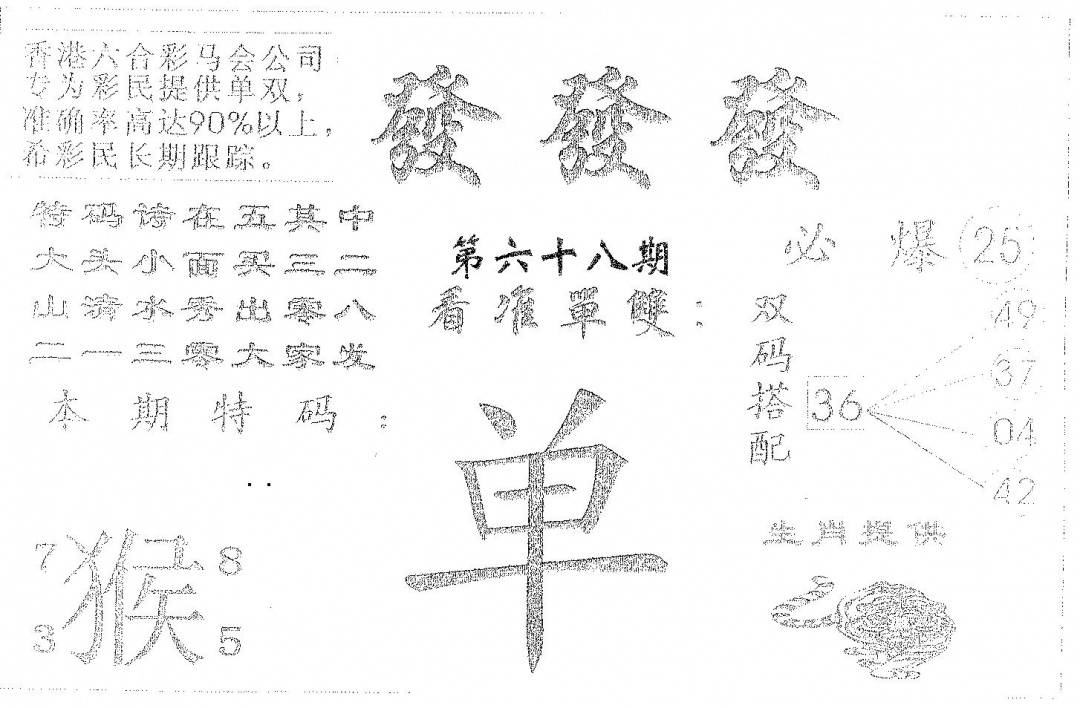 香港六合彩马会公司
专为彩民提供单双，
准确率高达90%以上，
希彩民长期跟踪。
發發發
特码诗在五其中
大头小面买三二
山清水秀出零八
二一三零大家发
本期特码：
猴
7 8
3 5
第六十八期
看准單雙：
单
必爆25
双码搭配
36
49
37
04
42
生肖提供